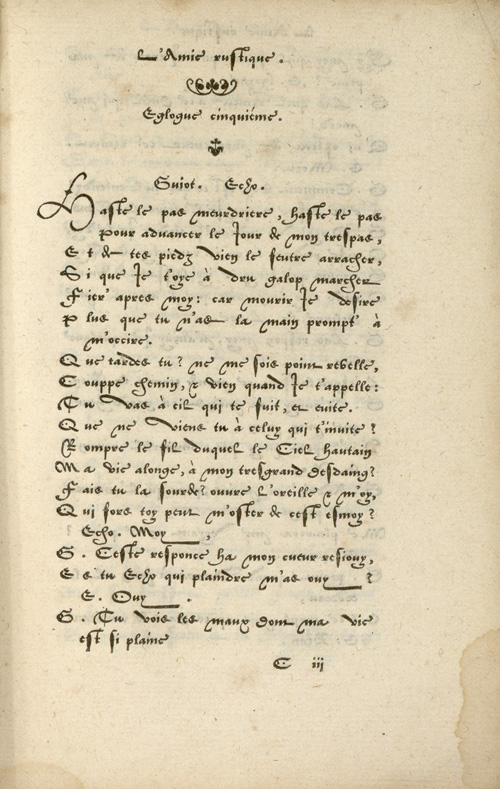 L'Amie rustique.
Eglogue cinquiéme.
Guiot. Echo.
Haste le pas meurdriere, haste le pas
Pour advancer le Jour de mon trespas,
Et de tes piedz vien le feutre arracher,
Si que Je t'oye à dru galop marcher
Fier' apres moy: car mourir Je desire
Plus que tu n'as la main prompt' à
m'occire.
Que tardes tu? ne me sois point rebelle,
Couppe chemin, & vien quand Je t'appelle:
Tu vas à cil qui te fuit, et evite.
Que ne viens tu à celuy qui t'invite?
Rompre le fil duquel le Ciel hautain
Ma vie alonge, à mon tresgrand desdaing?
Fais tu la sourde? ouvre l'oreille & m'oy,
Qui fors toy peut m'oster de cest esmoy?
Echo. Moy ,
G. Ceste responce ha mon cueur resiouy,
Es tu Echo qui plaindre m'as ouy ?
E. Ouy .
G. Tu vois les maux dont ma vie
est si plaine
C iii